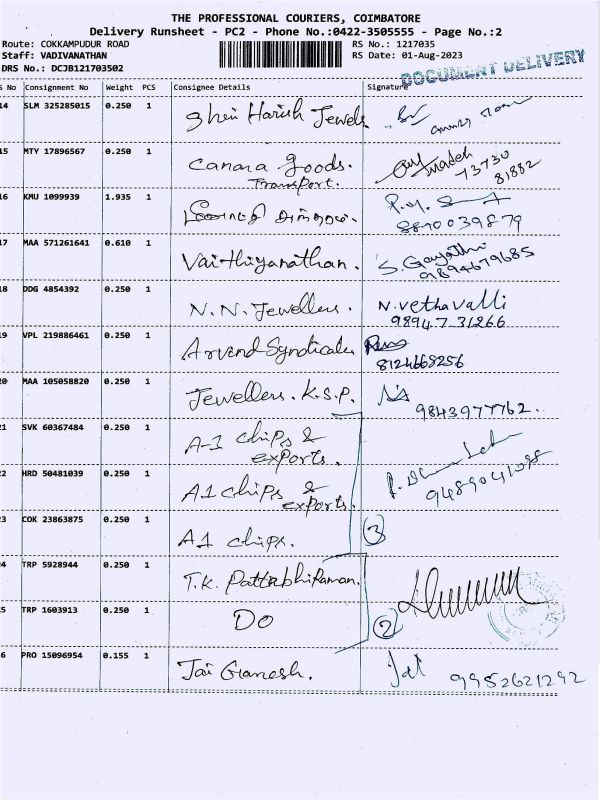 THE PROFESSIONAL COURIERS, COIMBATORE
Delivery Runsheet - PC2 - Phone No.:0422-3505555 - Page No.:2
Route: COKKAMPUDUR ROAD RS No.: 1217035
Staff: VADIVANATHAN RS Date: 01-Aug-2023
DRS No.: DCJB121703502
DOCUMENT DELIVERY
S No Consignment No Weight PCS Consignee Details Signature
14 SLM 325285015 0.250 1 Shri Harish Jewels
15 MTY 17896567 0.250 1 Canara goods. Transport. 73730 81882
16 KMU 1099939 1.935 1 8870039879
17 MAA 571261641 0.610 1 Vaithiyanathan. S. Gayathri 9894679685
18 DDG 4854392 0.250 1 N.N. Jewellers. N. Vethavalli 98947 31266
19 VPL 219886461 0.250 1 Arvind Syndicate 8124668256
20 MAA 105058820 0.250 1 Jewellers. K.S.P. 9843977762.
21 SVK 60367484 0.250 1 A-1 chips & exports.
22 HRD 50481039 0.250 1 A1 chips & exports. 9489041098
23 COK 23863875 0.250 1 A1 chips. 3
24 TRP 5928944 0.250 1 T.K. Pattabhi Raman.
25 TRP 1603913 0.250 1 Do 2
26 PRO 15096954 0.155 1 Jai Ganesh. Jai 9952621292